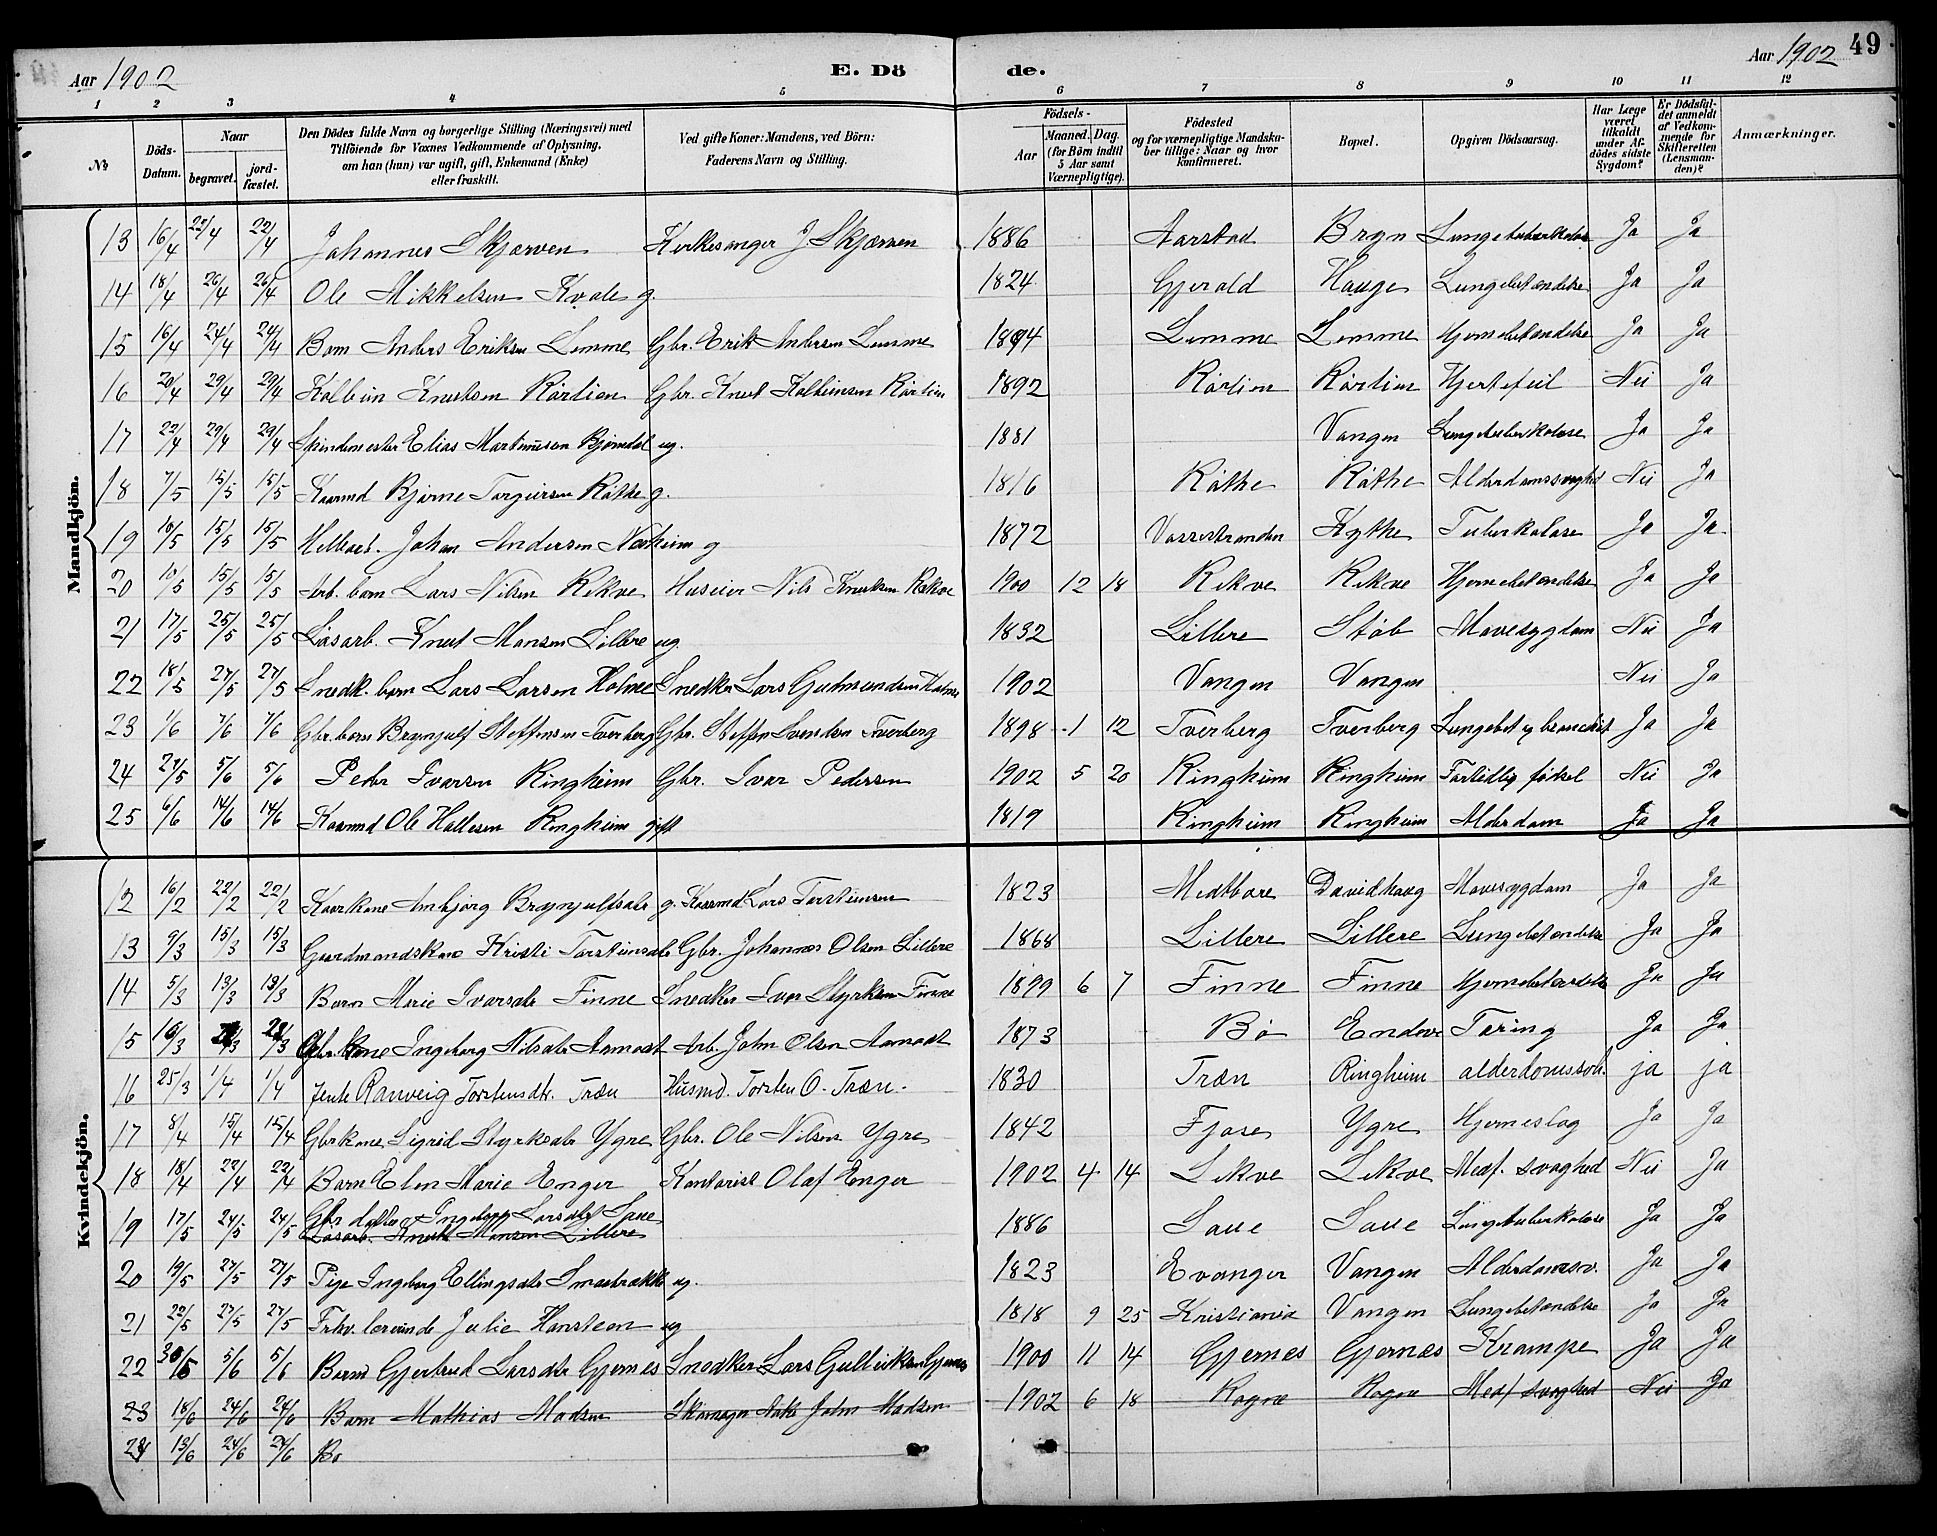 Aar 1902 E. Dö de. Aar 1902 49
1 2 3 4 5 6 7 8 9 10 11 12
№ Döds-Datum. Naar begravet. jord-fæstet. Den Dödes fulde Navn og borgerlige Stilling (Næringsvei) med Tilföiende for Voxnes Vedkommende af Oplysning, om han (hun) var ugift, gift, Enkemand (Enke) eller fraskilt. Ved gifte Koner: Mandens, ved Börn: Faderens Navn og Stilling. Födsels- Aar Maaned. Dag. (for Börn indtil 5 Aar samt Værnepligtige). Födested og for værnepligtige Mandska-ber tillige: Naar og hvor konfirmeret. Bopæl. Opgiven Dödsaarsag. Har Læge været tilkaldt under Af-dödes sidste Sygdom? Er Dödsfal-det anmeldt af Vedkom-mende for Skifteretten (Lensman-den)? Anmærkninger.
Mandkjön.
13 16/4 22/4 22/4 Johannes Skjærven Kirkesanger J Skjærven 1886 Aarstad Bryn Lungetuberkulose Ja Ja
14 18/4 26/4 26/4 Ole Mikkelsen Kvale g. 1824 Gjerald Hauge Lungebetændelse Ja Ja
15 16/4 24/4 24/4 Barn Anders Eriksen Lemme Gbr. Erik Andersen Lemme 1894 Lemme Lemme Hjernebetændelse Ja Ja
16 20/4 29/4 29/4 Kolbein Knutsen Rørlien Gbr. Knut Kolbeinsen Rørlien 1892 Rørlien Rørlien Hjertefeil Nei Ja
17 22/4 29/4 29/4 Spindemester Elias Martinusen Bjørndal ug. 1881 Vangen Lungetuberkulose Ja Ja
18 7/5 15/5 15/5 Kaarmd Bjørne Torgeirsen Røthe g. 1816 Røthe Røthe Alderdomssvaghed Nei Ja
19 10/5 15/5 15/5 Johan Andersen Nesheim g 1872 Vassestranden Kythe Tuberkulose Ja Ja
20 10/5 15/5 15/5 Arb. barn Lars Nilsen Rekve Huseier Nils Knutsen Rekve 1900 12 18 Rekve Rekve Hjernebetændelse Ja Ja
21 17/5 25/5 25/5 Løsarb. Knut Monsen Lillere ug. 1832 Lillere Støb Mavesygdom Nei Ja
22 18/5 27/5 27/5 Snedk. barn Lars Larsen Holme Snedker Lars Gutmundsen Holme 1902 Vangen Vangen Nei Ja
23 1/6 7/6 7/6 Gbr. barn Brynjulf Steffensen Tverberg Gbr. Steffen Svendsen Tverberg 1898 1 12 Tverberg Tverberg Lungebet. og bronchit Ja Ja
24 27/5 5/6 5/6 Peder Ivarsen Ringheim Gbr. Ivar Pedersen 1902 5 20 Ringheim Ringheim Fortidlig fødsel Nei Ja
25 6/6 14/6 14/6 Kaarmd Ole Hallesen Ringheim gift 1819 Ringheim Ringheim Alderdom Ja Ja
Kvindekjön.
12 16/2 22/2 22/2 Kaarkone Anbjørg Brynjulfsdtr g. Kaarmd Lars Torsteinsen 1823 Medbøre Davidhaug Mavesygdom Ja Ja
13 9/3 15/3 15/3 Gaardmandskone Kristi Torsteinsdtr Gbr. Johannes Olsen Lillere 1868 Lillere Lillere Lungebetændelse Ja Ja
14 5/3 13/3 13/3 Barn Marie Ivarsdtr Finne Snedker Ivar Styrksen Finne 1899 6 7 Finne Finne Hjernebetændelse Ja Ja
15 16/3 22/3 Gbr. kone Ingeborg Nilsdtr Aamodt Arb. John Olsen Aamodt 1873 Bø Endeve Tæring Ja Ja
16 25/3 1/4 1/4 Jente Ranveig Torstensdtr. Træn Husmd. Torsten O. Træn. 1830 Træn Ringheim alderdomssvh. ja ja
17 8/4 15/4 15/4 Gbrkone Sigrid Styrksdtr Ygre Gbr. Ole Nilsen Ygre 1842 Fjose Ygre Hjerneslag Ja Ja
18 18/4 22/4 22/4 Barn Elen Marie Enger Kontorist Olaf Enger 1902 4 14 Lekve Lekve Medf. svaghed Nei Ja
19 17/5 24/5 24/5 Gbr datter Ingeborg Larsdtr Saue 1886 Saue Saue Lungetuberkulose Ja Ja
Løsarb. Knut Monsen Lillere
20 19/5 27/5 27/5 Pige Ingeborg Ellingsdtr Smaabrække ug. 1823 Evanger Vangen Alderdomssv. Ja Ja
21 22/5 27/5 27/5 Frkv. lærerinde Julie Hansteen ug 1818 9 25 Kristiania Vangen Lungebetændelse Ja Ja
22 30/5 5/6 5/6 Barn Gjertrud Larsdtr Gjernes Snedker Lars Gulleiksen Gjernes 1900 11 14 Gjernes Gjernes Krampe Ja Ja
23 18/6 24/6 24/6 Barn Mathias Madsen Skomager John Madsen 1902 6 18 Rogne Rogne Medf svaghed Nei Ja
24 13/6 24/6 24/6 Ba